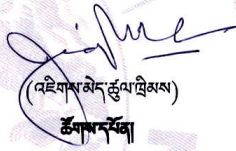 (འཇིགས་མེད་ཚུལ་ཁྲིམས)
ཚོགས་དཔོན།